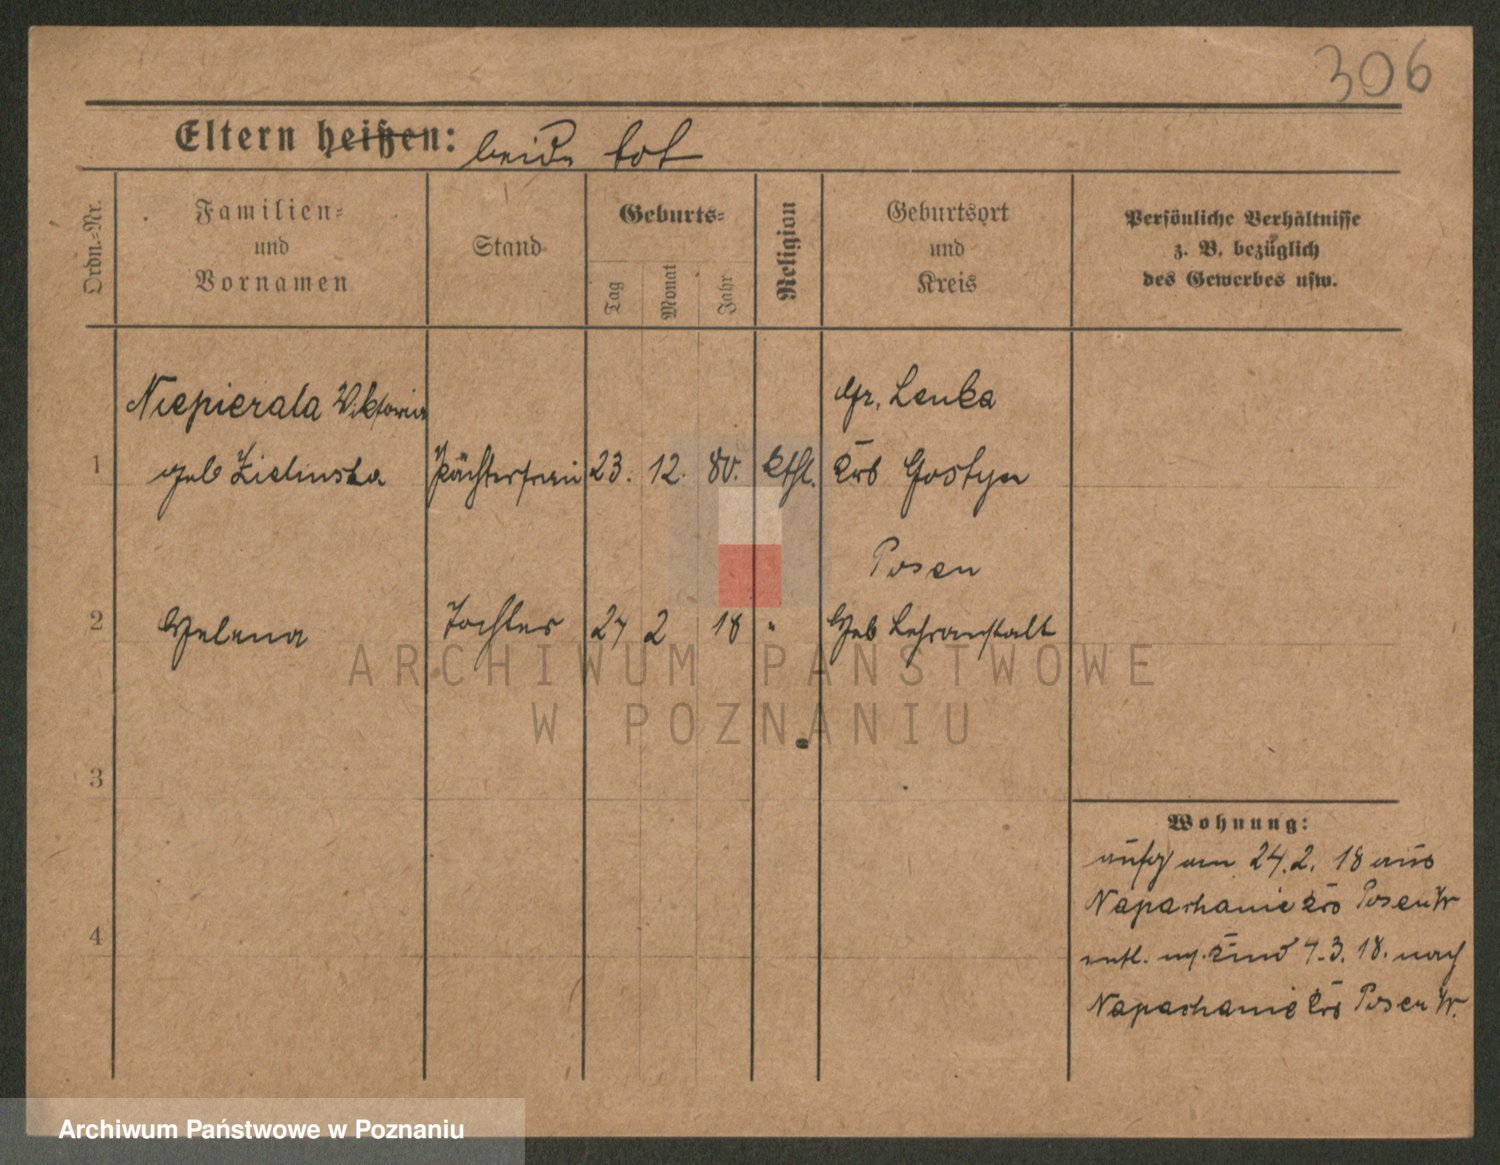 306
Eltern heißen: beide tot
Ordn.=Nr.
Familien=
und
Vornamen
Stand
Geburts=
Tag
Monat
Jahr
Religion
Geburtsort
und
Kreis
Persönliche Verhältnisse
z. B. bezüglich
des Gewerbes usw.
Niepierala Viktoria
Gr. Lenka
1 geb Zielinska Pächterfrau 23. 12. 80. kthl. Krs Gostyn
Posen
2 Helena Tochter 24 2 18 " Heb Lehranstalt
ARCHIWUM PAŃSTWOWE
W POZNANIU
3
Wohnung:
aufg am 24.2. 18 aus
Napachanie Krs Posen W
4
entl. m. Kind 4.3. 18. nach
Napachanie Krs Posen W.
Archiwum Państwowe w Poznaniu